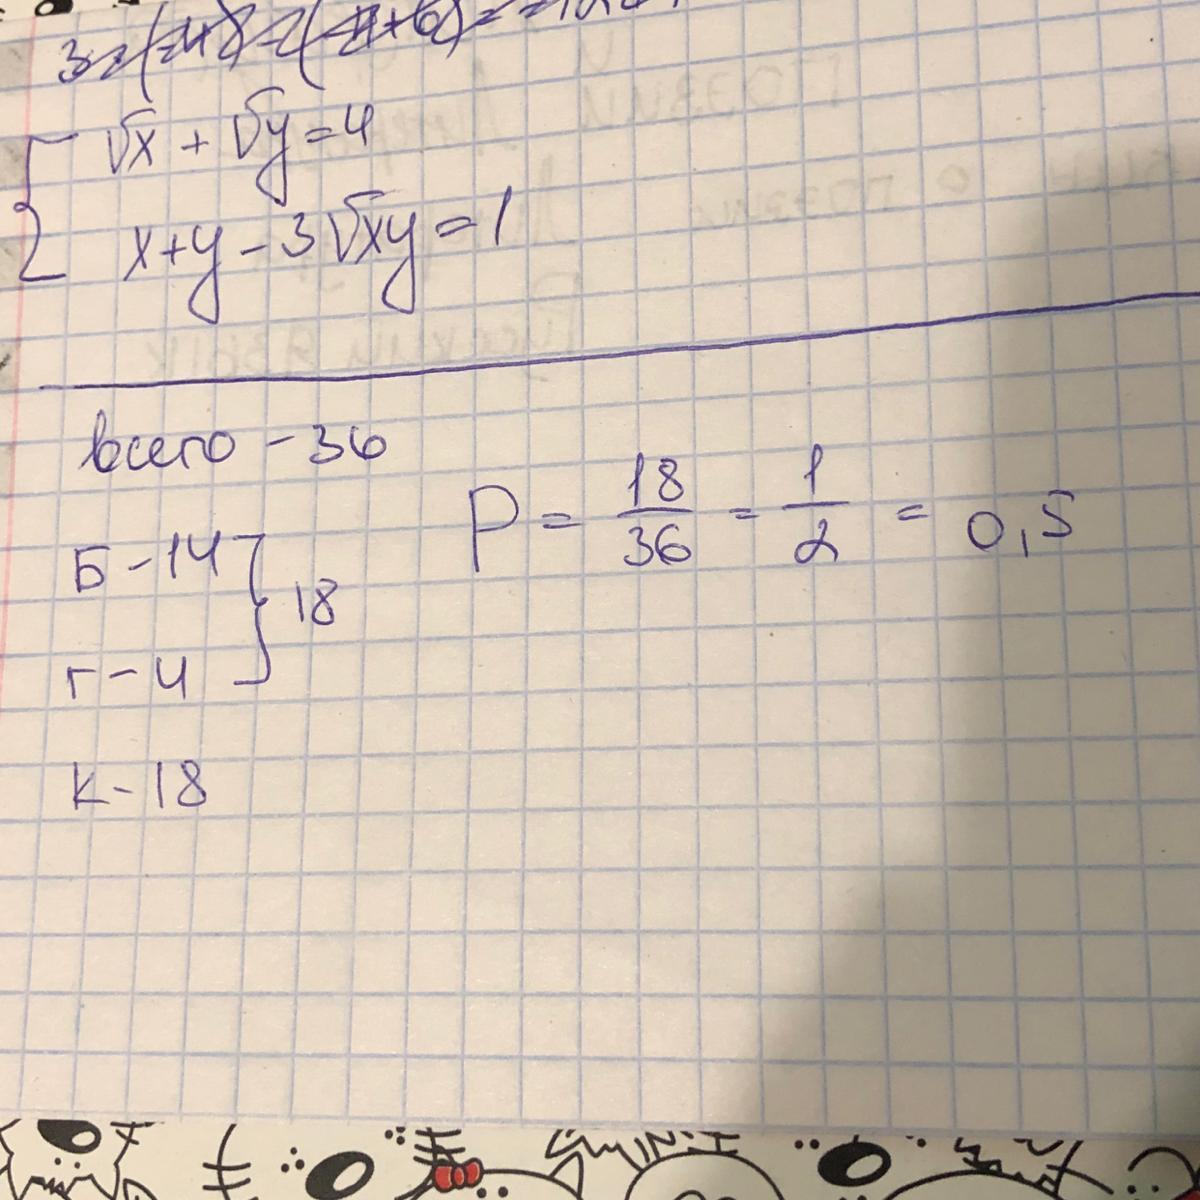 √x + √y = 4
x + y - 3√xy = 1
всего - 36
Б - 14
г - 4
18
к - 18
P = 18/36 = 1/2 = 0,5